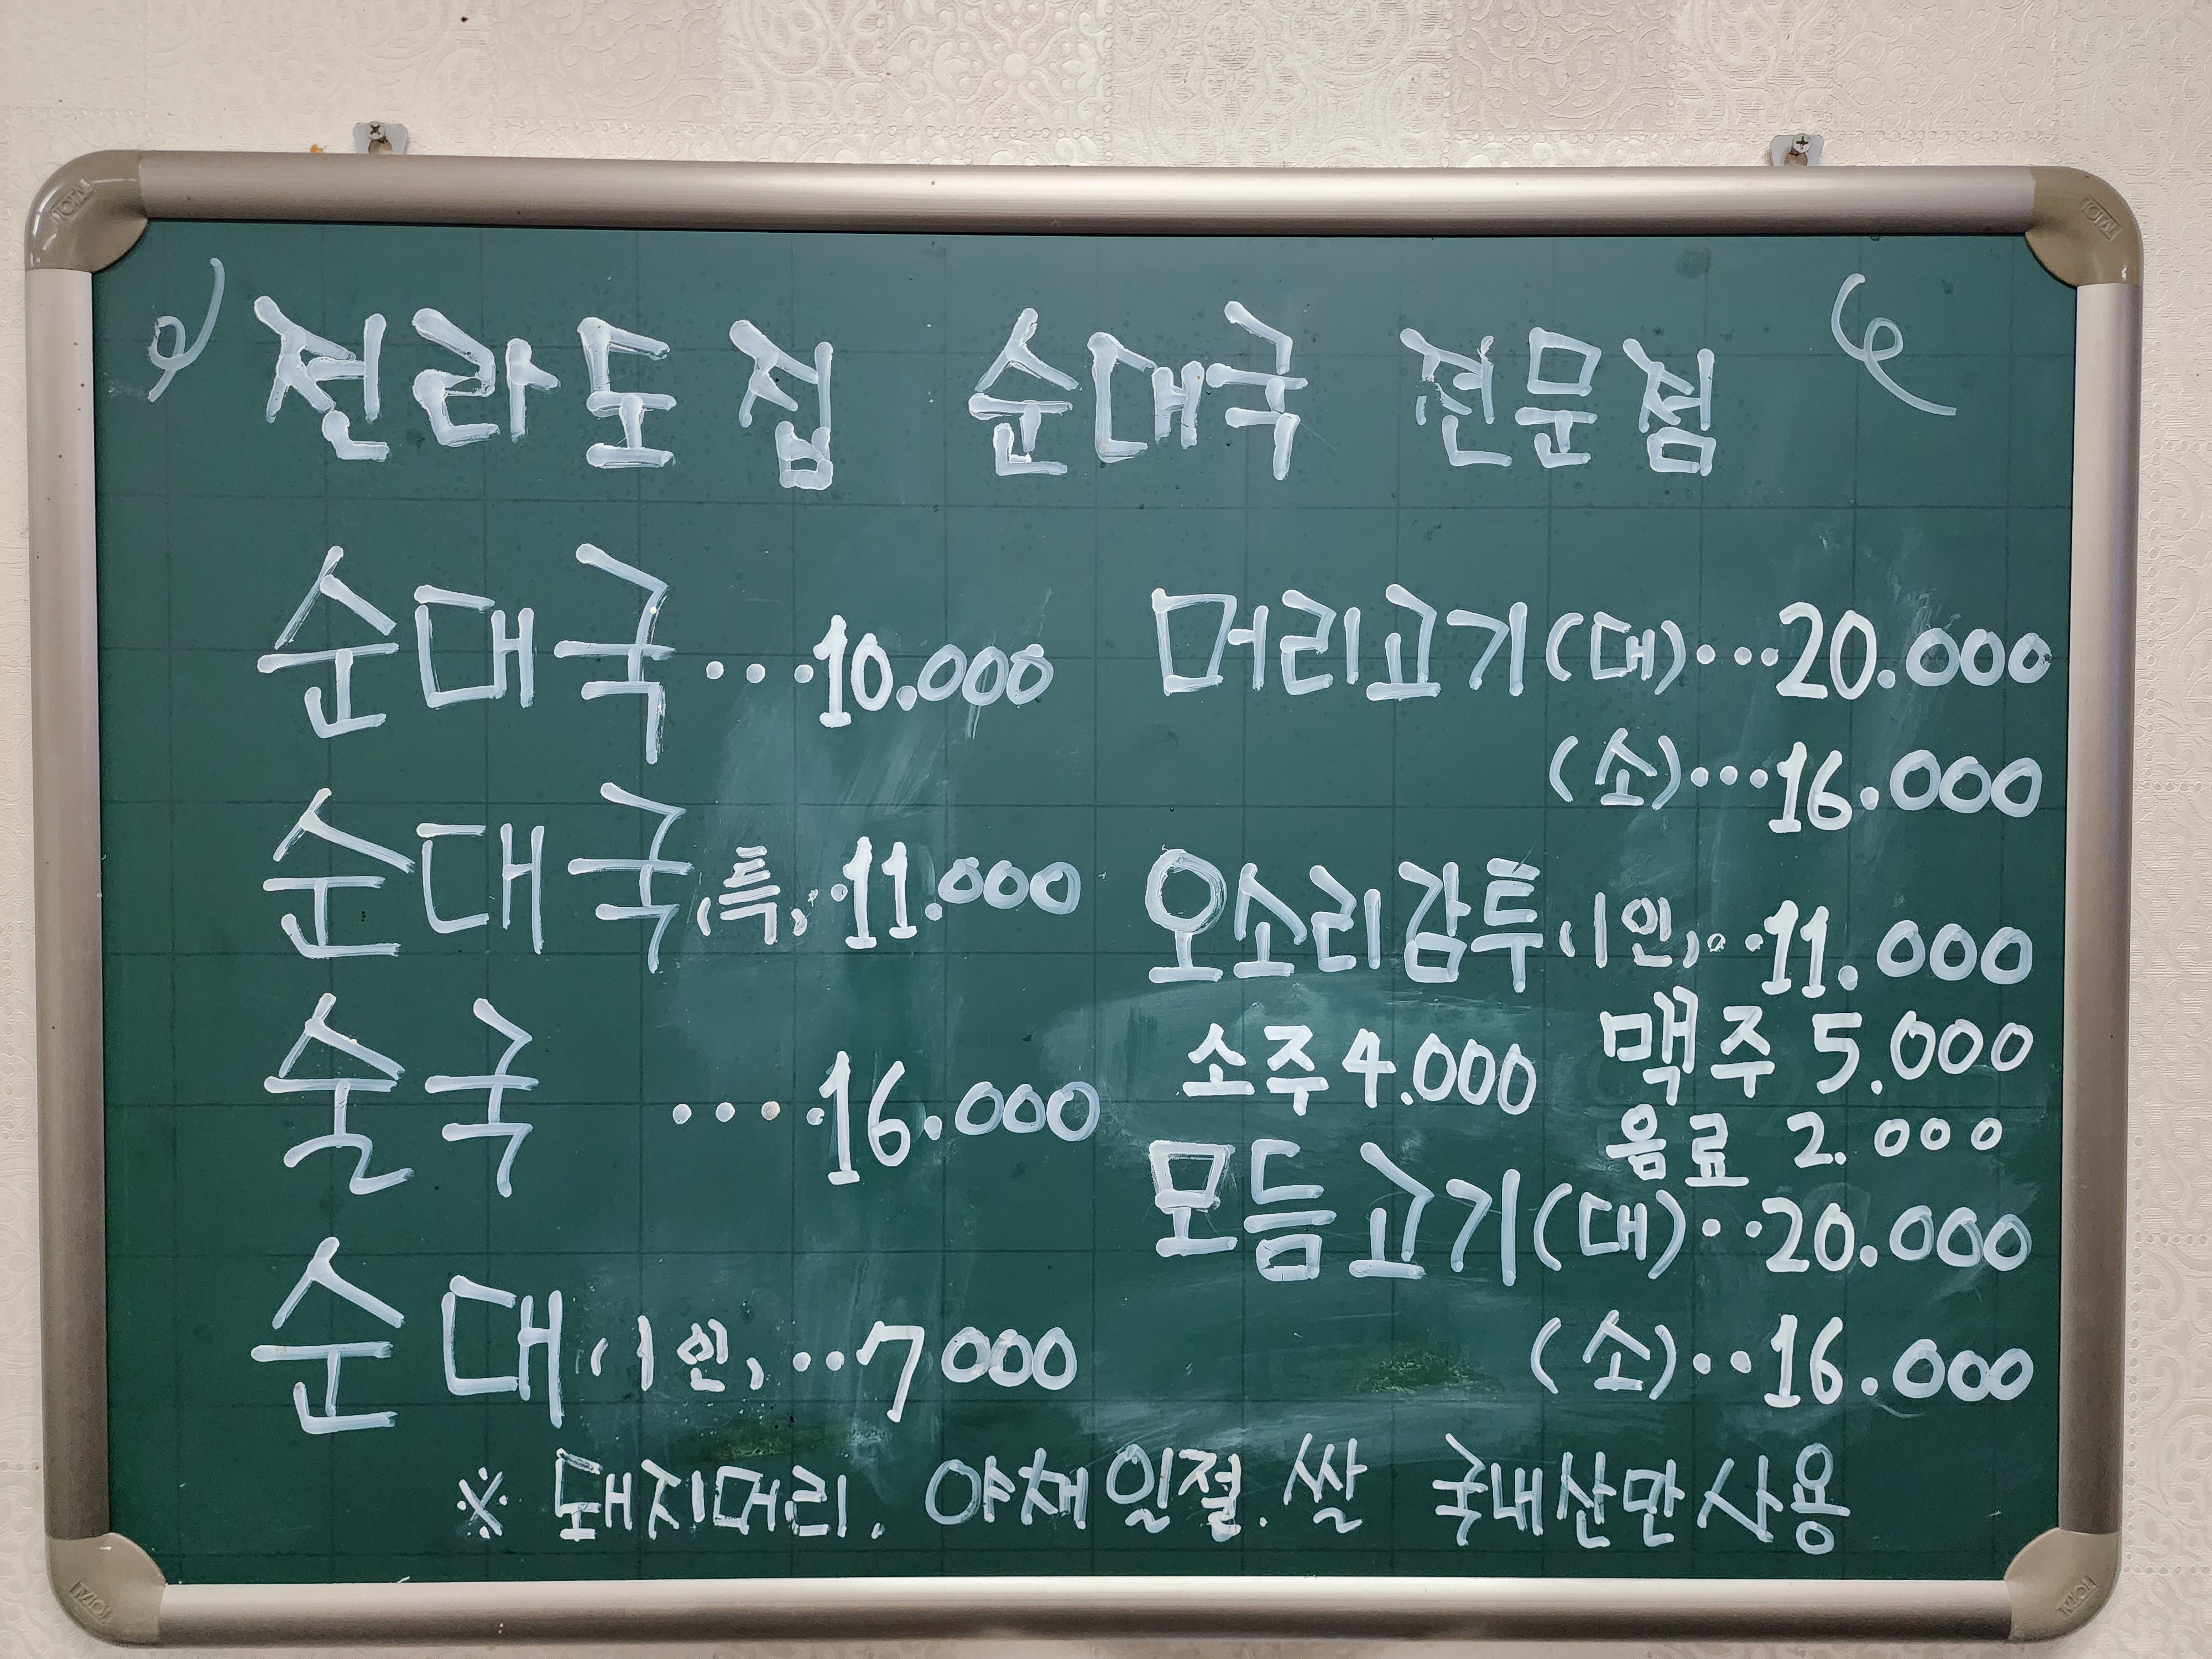 전라도집 순대국 전문점
순대국 ...10.000
순대국(특)..11.000
술국 ....16.000
순대(1인)...7000
머리고기(대)...20.000
(소)...16.000
오소리감투(1인)...11.000
소주 4.000 맥주 5.000
음료 2.000
모듬고기(대)..20.000
(소)...16.000
※ 돼지머리. 야채일절. 쌀 국내산만사용
TOTAL
TOTAL
TOTAL
TOTAL